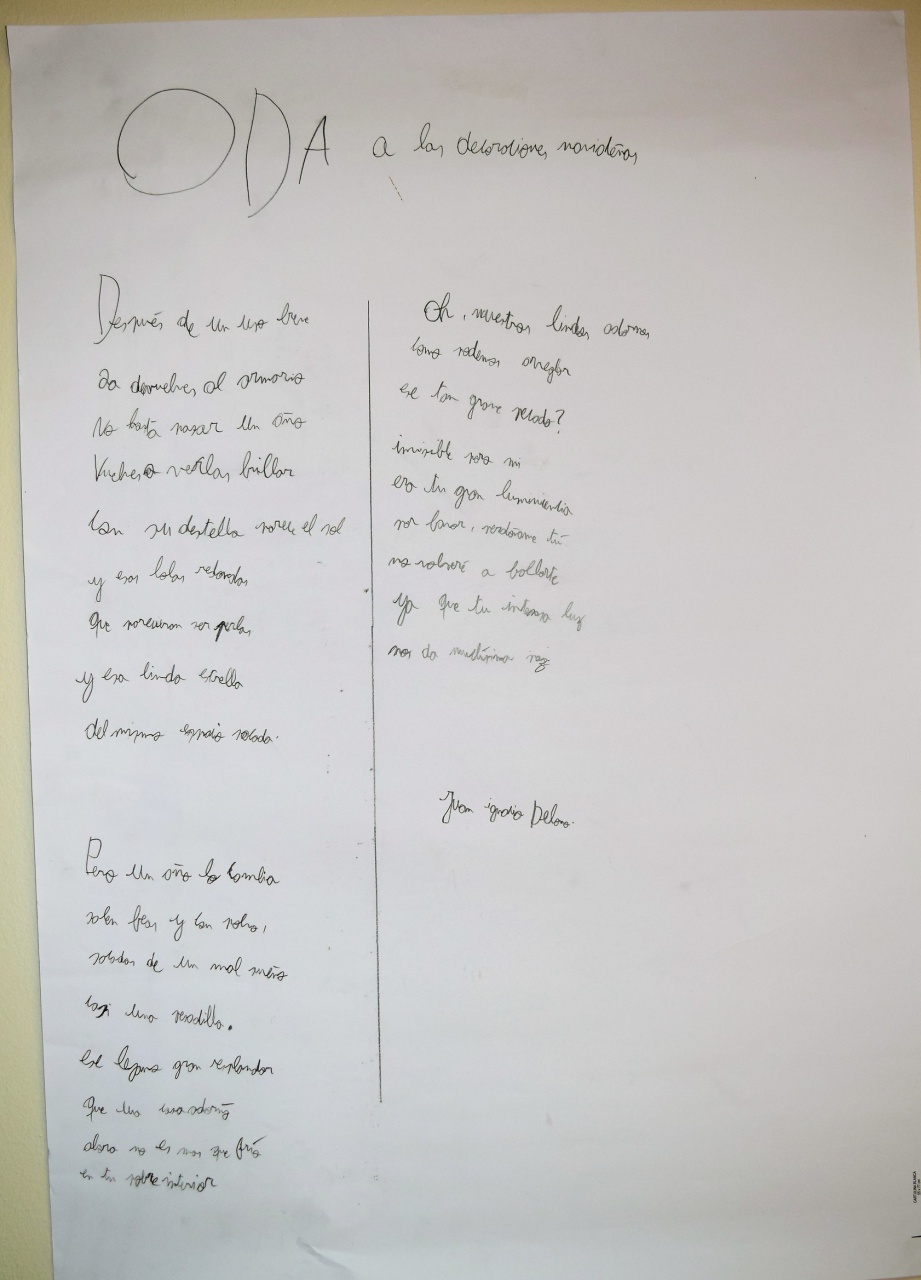 ODA a las decoraciones navideñas
Después de un uso breve
Ya devuelves al armario
No basta pasar un año
Vuelves a verlas brillar
Con su destello parece el sol
y esas bolas redondas
que parecieran ser perlas
y esa linda estrella
del mismo espacio robada.
Pero un año lo cambia
salen feas y con polvo,
sacadas de un mal sueño
casi una pesadilla.
ese lejano gran resplandor
que un adornó
ahora no es mas que frío
en tu pobre interior
Oh, nuestros lindos adornos
como podemos arreglar
ese tan grave pecado?
invisible para mi
era tu gran luminiscencia
por favor, perdóname tú
no volveré a
ya que tu intensa luz
nos da muchísima paz
Juan ignacio